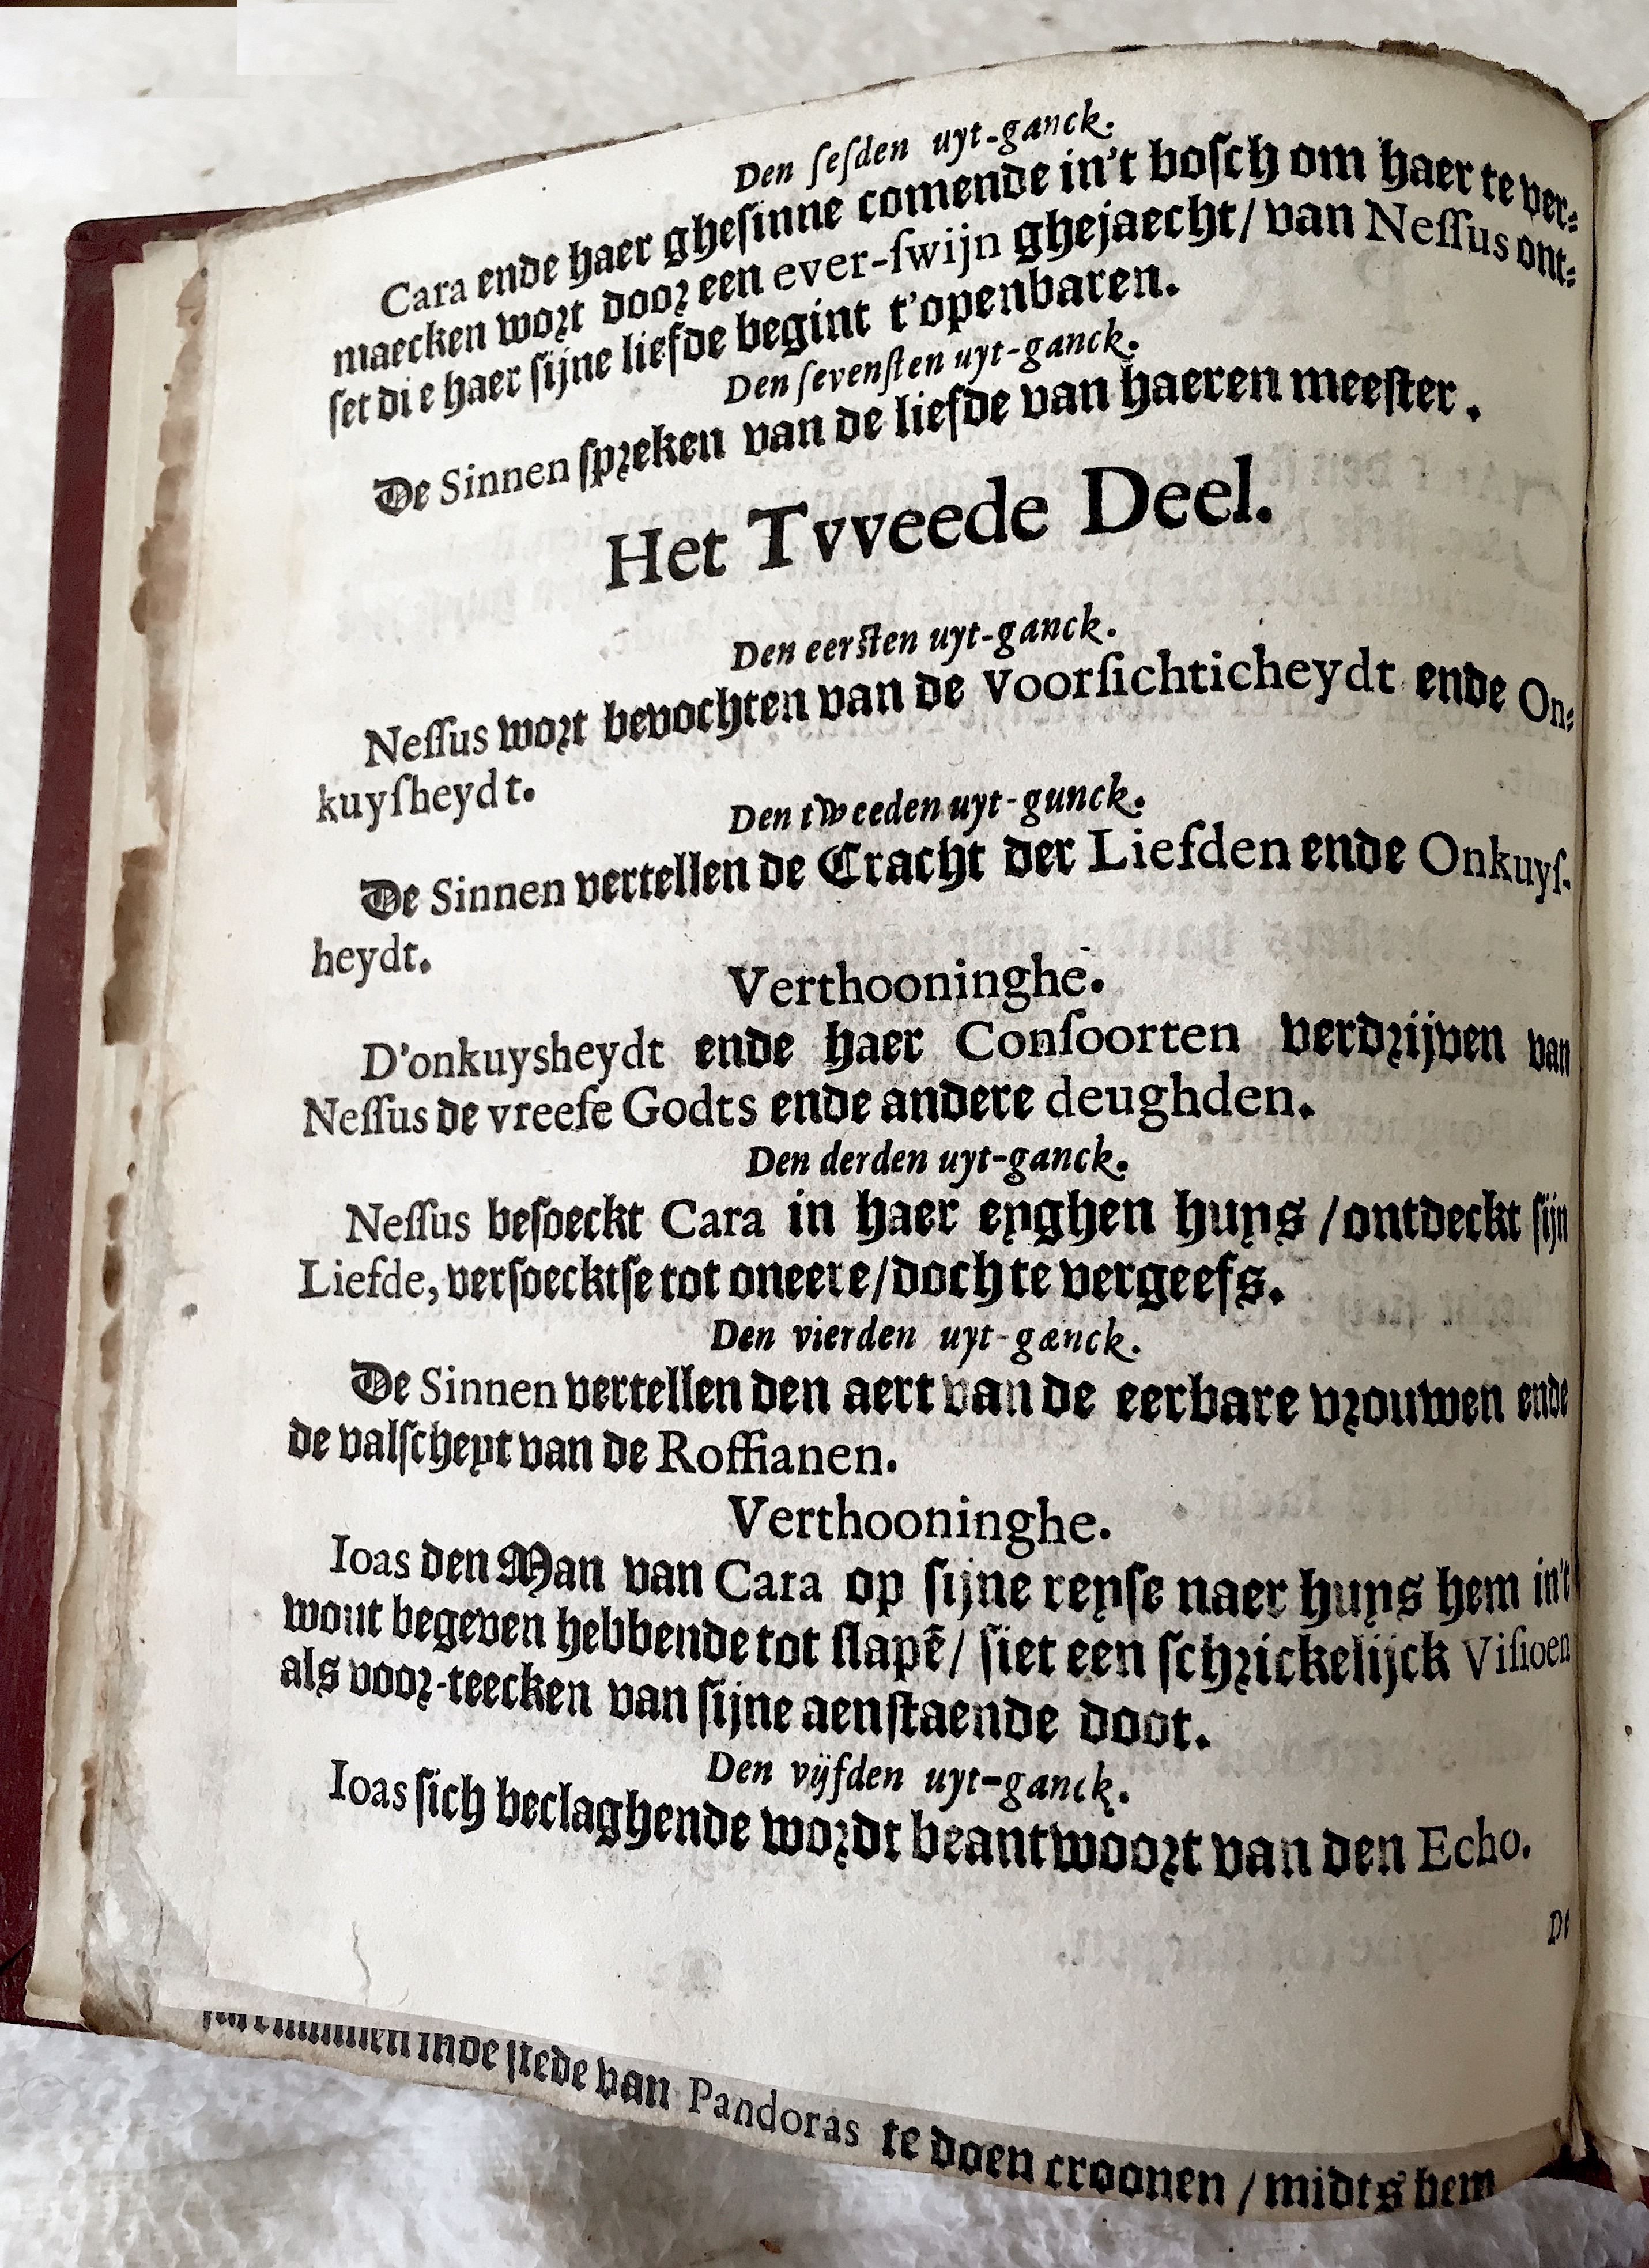 Den ſeſden uyt-ganck.
Cara ende haer gheſinne comende in't boſch om haer te ver-
maecken wort door een ever-ſwijn ghejaecht/ van Neſſus ont-
ſet die haer ſijne liefde begint t'openbaren.
Den ſevenſten uyt-ganck.
De Sinnen ſpreken van de liefde van haeren meeſter.
Het Tvveede Deel.
Den eerſten uyt-ganck.
Neſſus wort bevochten van de Voorſichticheydt ende On-
kuyſheydt.
Den tweeden uyt-gunck.
De Sinnen vertellen de Cracht der Liefden ende Onkuyſ-
heydt.
Verthooninghe.
D'onkuysheydt ende haer Conſoorten verdrijven van
Neſſus de vreeſe Godts ende andere deughden.
Den derden uyt-ganck.
Neſſus beſoeckt Cara in haer eyghen huys / ontdeckt ſijn
Liefde, verſoecktſe tot oneere/doch te vergeefs.
Den vierden uyt-gænck.
De Sinnen vertellen den aert van de eerbare vrouwen ende
de valſcheyt van de Roffianen.
Verthooninghe.
Ioas den Man van Cara op ſijne reyſe naer huys hem in't
wout begeven hebbende tot ſlapē/ ſiet een ſchrickelijck Viſioen
als voor-teecken van ſijne aenſtaende doot.
Den vijfden uyt-ganck.
Ioas ſich beclaghende wordt beantwoort van den Echo.
De
inde ſtede van Pandoras te doen croonen / midts hem